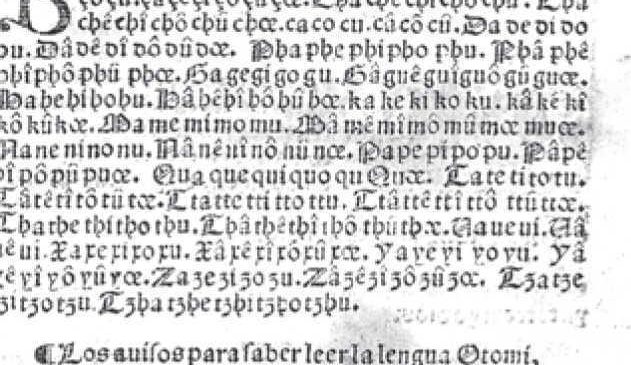 chê chî chô chû chœ. ca co cu. câ cô cû. Da de di do
du. Dâ dê dî dô dû dœ. Pha phe phi pho phu. Phâ phê
phî phô phû phœ. Ga ge gi go gu. Gâ guê gui guô gû guœ.
Ha he hi ho hu. Hâ hê hî hô hû hœ. ka ke ki ko ku. kâ kê kî
kô kû kœ. Ma me mi mo mu. Mâ mê mî mô mû mœ muœ.
Na ne ni no nu. Nâ nê nî nô nû nœ. Pa pe pi po pu. Pâ pê
pî pô pû puœ. Qua que qui quo qu Quœ. Ta te ti to tu.
Tâ tê tî tô tû tœ. Tta tte tti tto ttu. Ttâ ttê ttî ttô ttû ttœ.
Tha the thi tho thu. Thâ thê thî thô thû thœ. Ua ue ui. Uâ
uê ui. Xa xe xi xo xu. Xâ xê xî xô xû xœ. Ya ye yi yo yu. Yâ
yê yî yô yû yœ. Za ze zi zo zu. Zâ zê zî zô zû zœ. Tza tze
tzi tzo tzu. Tzha tzhe tzhi tzho tzhu.
¶ Los auisos para saber leer la lengua Otomi,